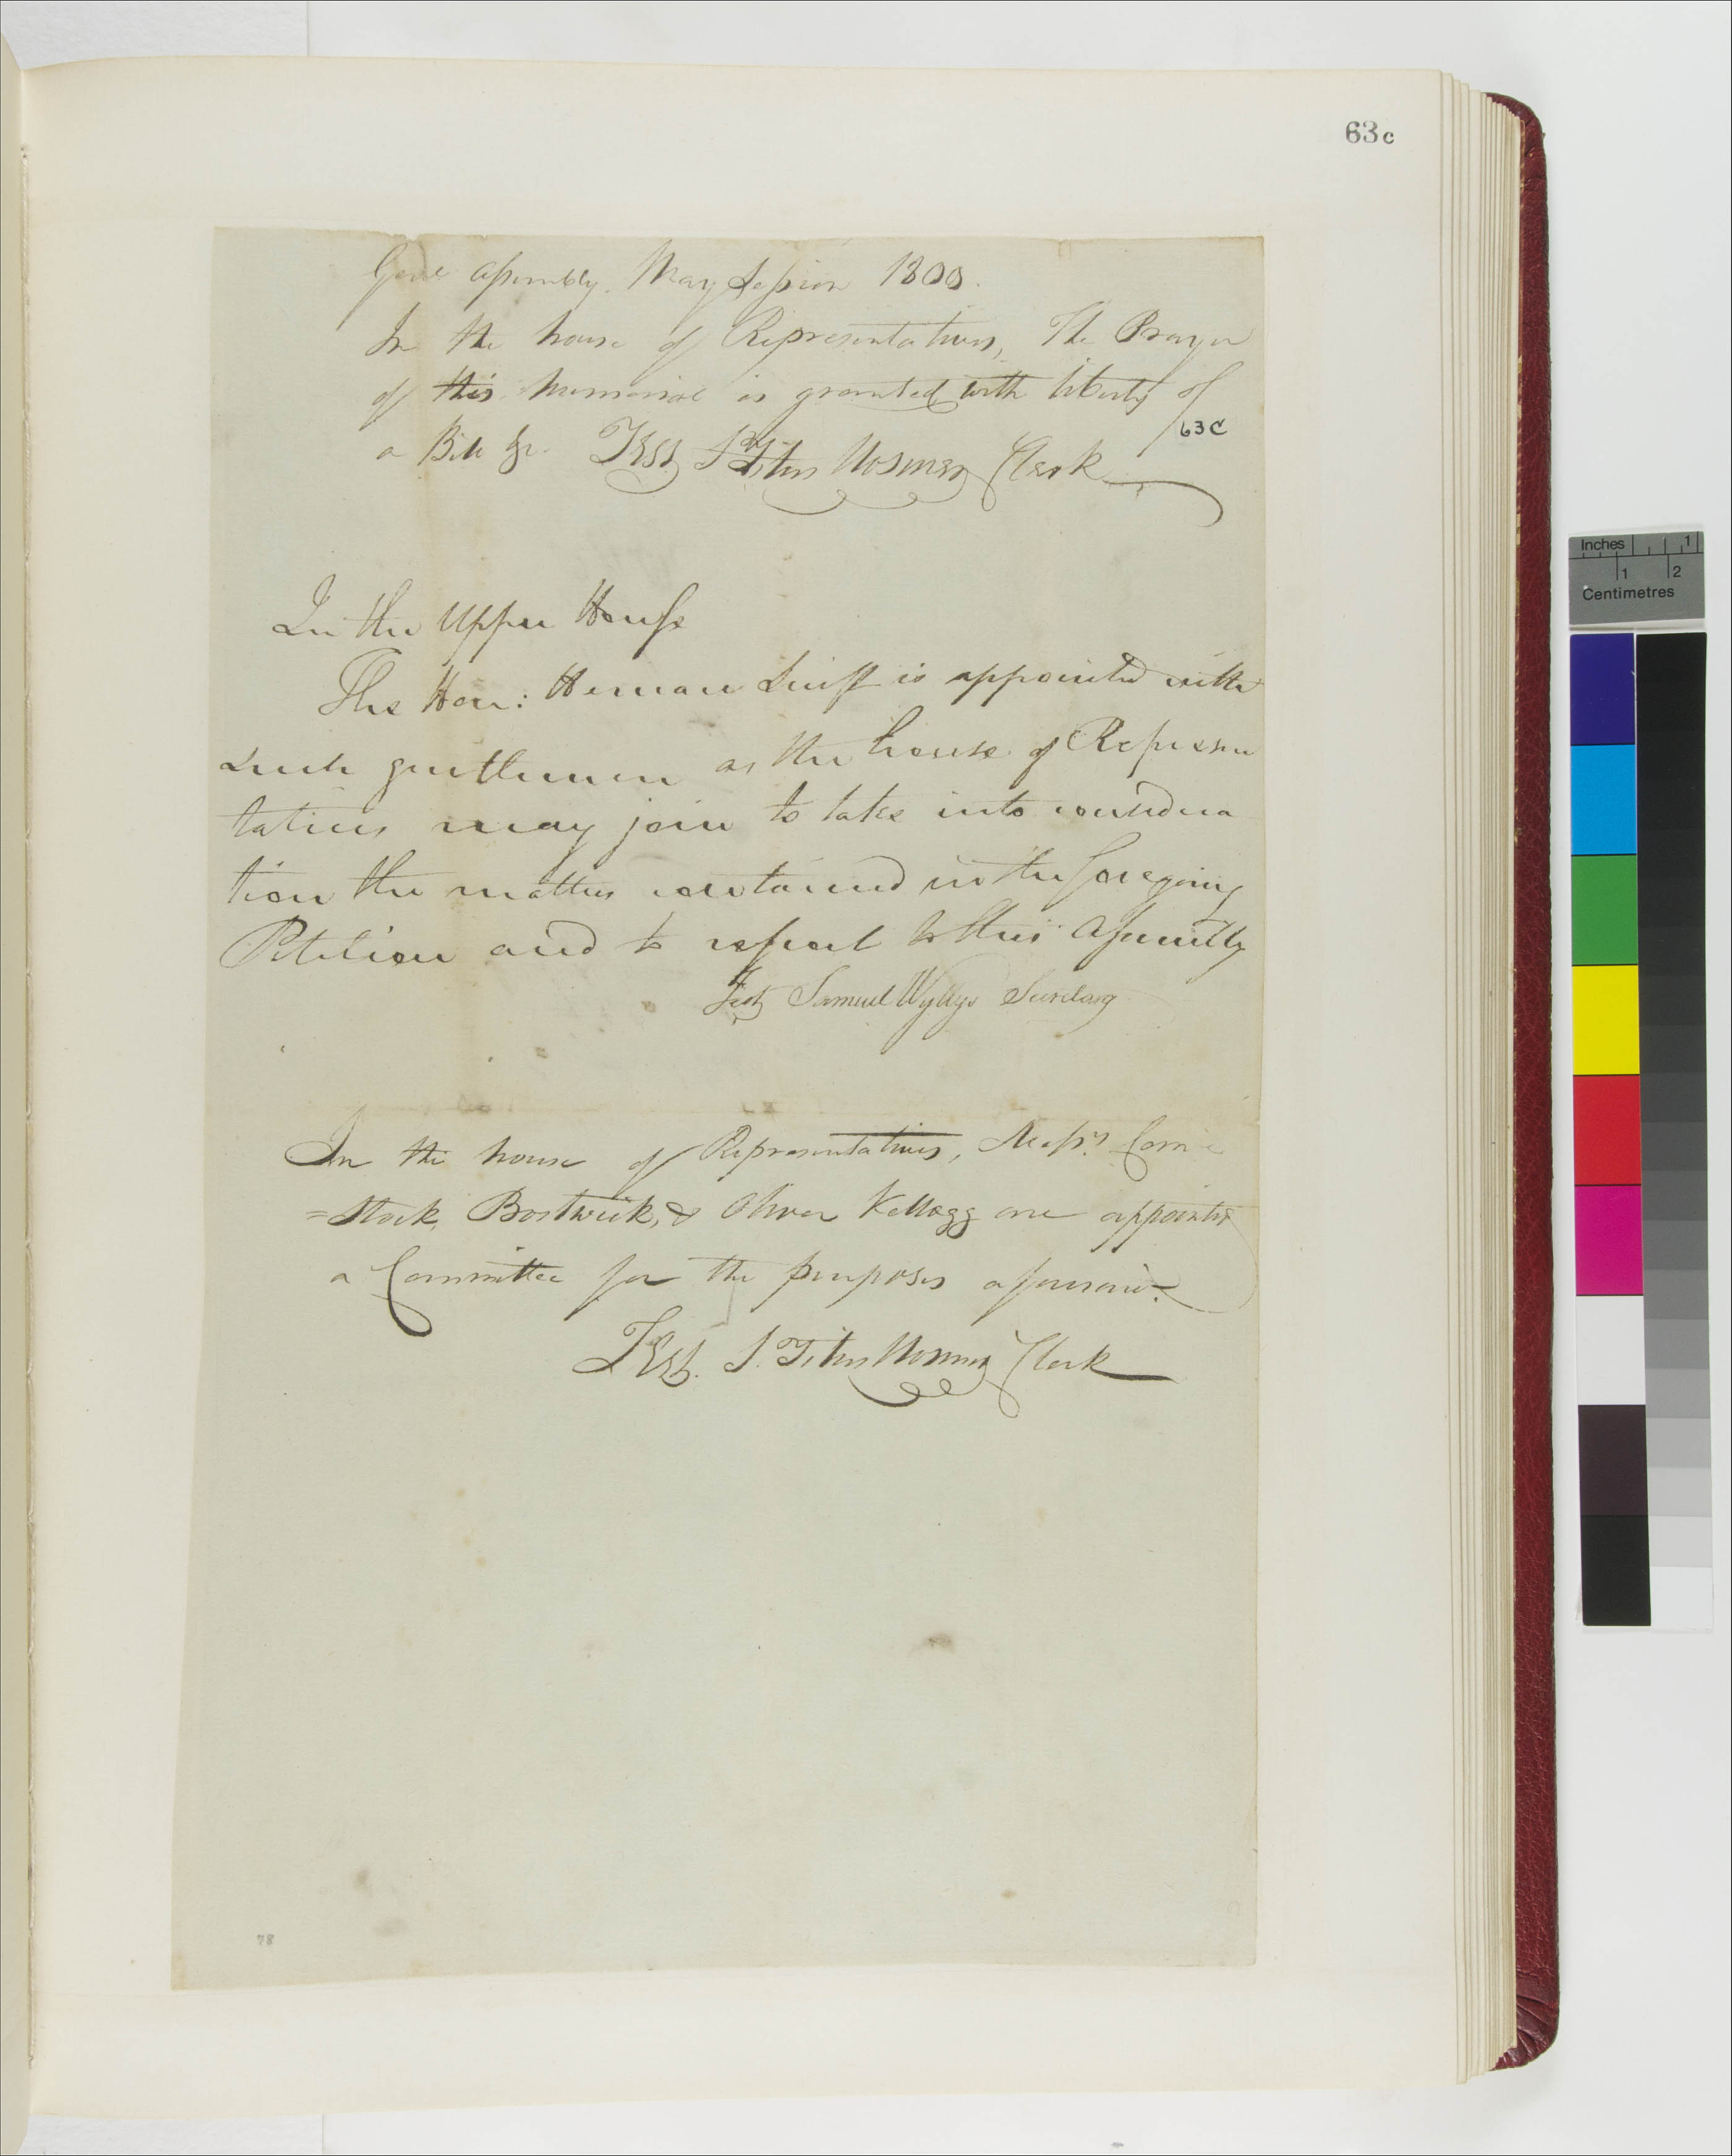 63c
Genl Assembly. May Session 1800.
In the house of Representatives, The Prayer
of this memorial is granted with liberty of
63C
a Bill &c. Test S Titus Hosmer Clerk
In the Upper House
The Hon: Heman Swift is appointed with
such gentlemen as the house of Represen
tatives may join to take into considera
tion the matters contained in the foregoing
Petition and to report to this Assembly
Test Samuel Wyllys Secretary
In the house of Representatives, Messrs. Com
=stock, Bostwick, & Oliver Kellogg are appointed
a Committee for the purposes aforesaid.
Test. S. Titus Hosmer Clerk
78
Inches 1
1 2
Centimetres